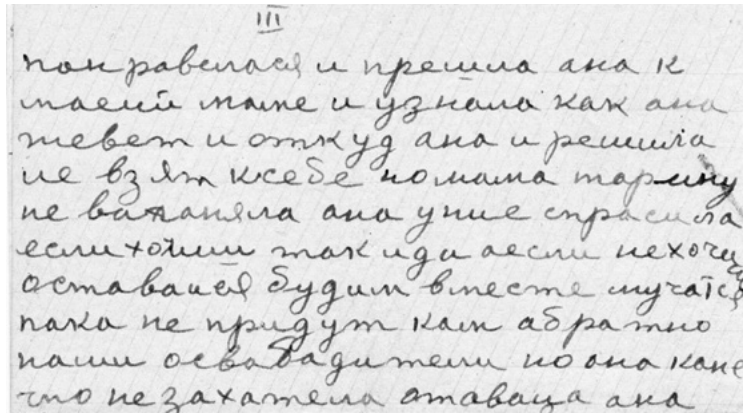 III
панравелася и прешла ана к
маеий маме и узнала как ана
жевет и откуд ана и решила
ие взят ксебе но мама тарину
не ваганяла ана уние спрасила
если хочиш так иди аесли нехочиш
оставайся будим вместе мучатся
пака не придут кам абратно
наши освабадители но она кане
чно не захатела атаваца ана